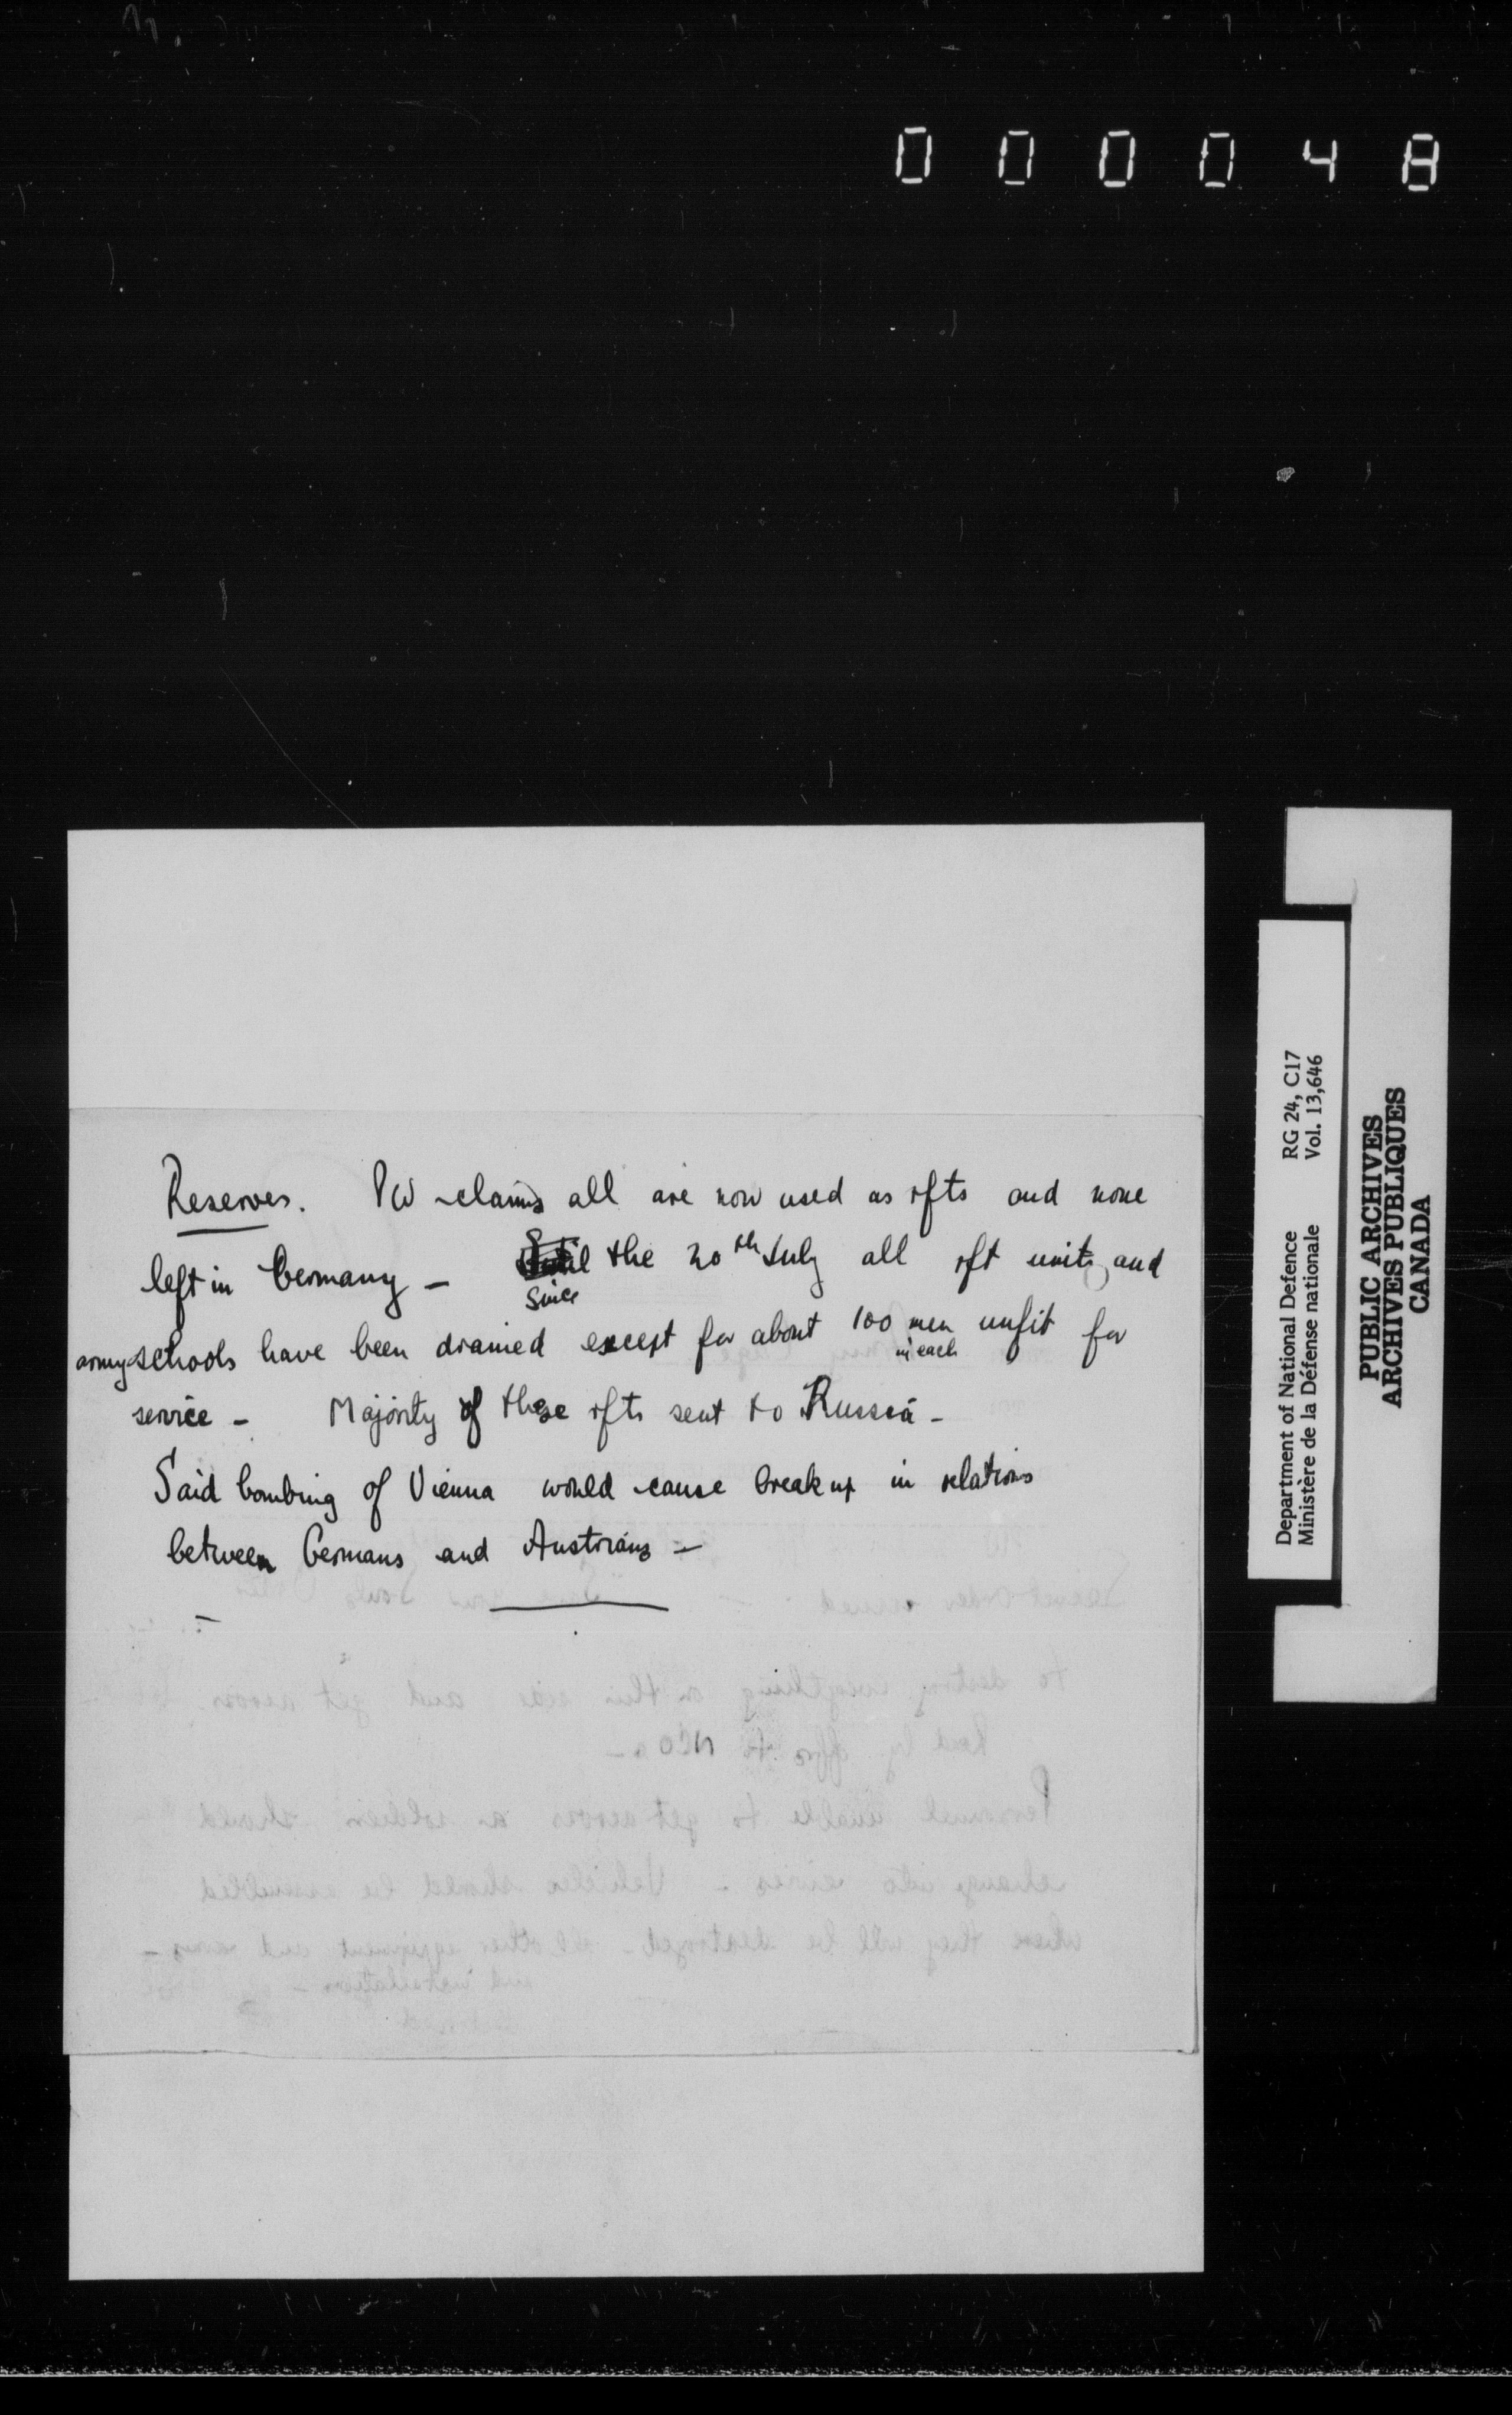 000048
Reserves. PW claims all are now used as rfts and none
left in Germany - Since the 20th July all rft units and
army schools have been drained except for about 100 men in each unfit for
service - Majority of these rfts sent to Russia -
Said bombing of Vienna would cause break up in relations
between Germans and Austrians -
Department of National Defence RG 24, C17
Ministère de la Défense nationale Vol. 13,646
PUBLIC ARCHIVES
ARCHIVES PUBLIQUES
CANADA